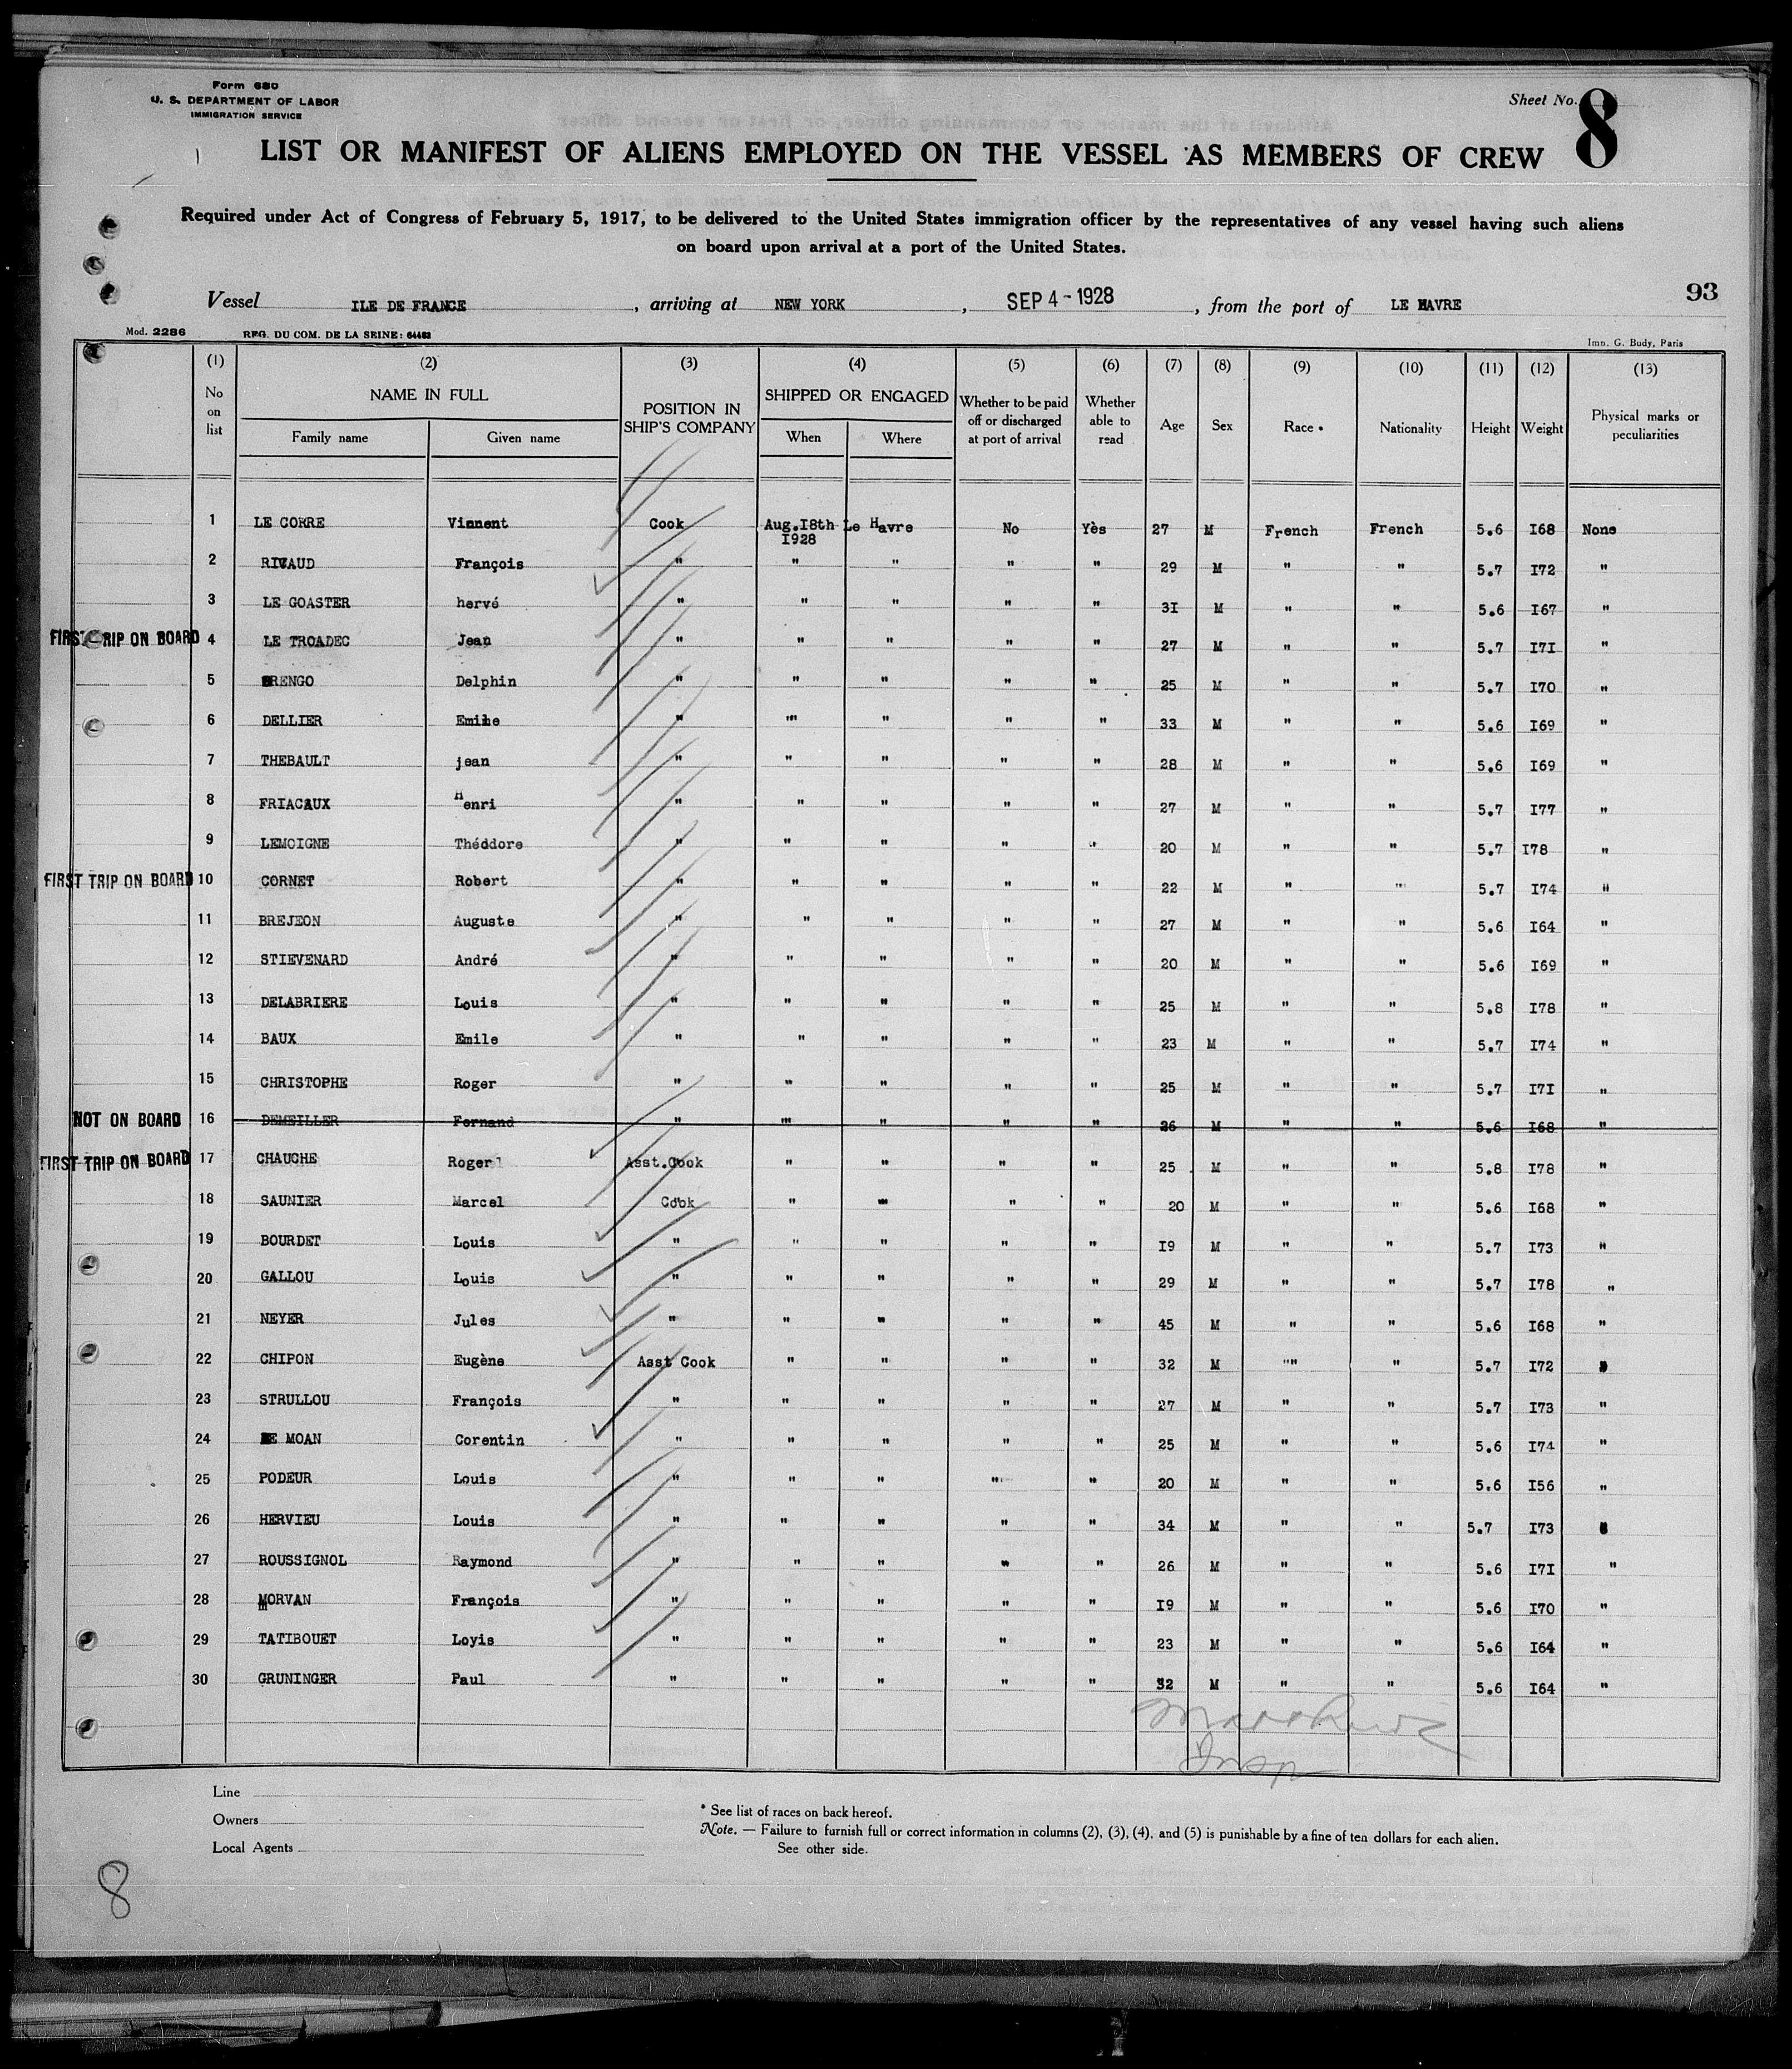 Form 680
U. S. DEPARTMENT OF LABOR
IMMIGRATION SERVICE
Sheet No. 8
LIST OR MANIFEST OF ALIENS EMPLOYED ON THE VESSEL AS MEMBERS OF CREW
Required under Act of Congress of February 5, 1917, to be delivered to the United States immigration officer by the representatives of any vessel having such aliens
on board upon arrival at a port of the United States.
93
Vessel ILE DE FRANCE , arriving at NEW YORK , SEP 4 - 1928 , from the port of LE HAVRE
Mod. 2286 REG. DU COM. DE LA SEINE: 64482 Imp. G. Budy, Paris
(1) (2) (3) (4) (5) (6) (7) (8) (9) (10) (11) (12) (13)
No on list NAME IN FULL Family name Given name POSITION IN SHIP'S COMPANY SHIPPED OR ENGAGED When Where Whether to be paid off or discharged at port of arrival Whether able to read Age Sex Race * Nationality Height Weight Physical marks or peculiarities
1 LE CORRE Vinnent Cook Aug.I8th I928 Le Havre No Yès 27 M French French 5.6 I68 None
2 RIVAUD François " " " " " 29 M " " 5.7 I72 "
3 LE GOASTER hervé " " " " " 3I M " " 5.6 I67 "
FIRST TRIP ON BOARD 4 LE TROADEC Jean " " " " " 27 M " " 5.7 I7I "
5 RENGO Delphin " " " " " 25 M " " 5.7 I70 "
6 DELLIER Emile " " " " " 33 M " " 5.6 I69 "
7 THEBAULT jean " " " " " 28 M " " 5.6 I69 "
8 FRIACAUX Henri " " " " " 27 M " " 5.7 I77 "
9 LEMOIGNE Théddore " " " " " 20 M " " 5.7 I78 "
FIRST TRIP ON BOARD 10 CORNET Robert " " " " " 22 M " " 5.7 I74 "
11 BREJEON Auguste " " " " " 27 M " " 5.6 I64 "
12 STIEVENARD André " " " " " 20 M " " 5.6 I69 "
13 DELABRIERE Louis " " " " " 25 M " " 5.8 I78 "
14 BAUX Emile " " " " " 23 M " " 5.7 I74 "
15 CHRISTOPHE Roger " " " " " 25 M " " 5.7 I7I "
NOT ON BOARD 16 DEMEILLER Fernand " " " " " 26 M " " 5.6 I68 "
FIRST TRIP ON BOARD 17 CHAUCHE Roger Asst.Cook " " " " 25 M " " 5.8 I78 "
18 SAUNIER Marcel Cook " " " " 20 M " " 5.6 I68 "
19 BOURDET Louis " " " " " I9 M " " 5.7 I73 "
20 GALLOU Louis " " " " " 29 M " " 5.7 I78 "
21 NEYER Jules " " " " " 45 M " " 5.6 I68 "
22 CHIPON Eugène Asst Cook " " " " 32 M " " 5.7 I72 "
23 STRULLOU François " " " " " 27 M " " 5.7 I73 "
24 LE MOAN Corentin " " " " " 25 M " " 5.6 I74 "
25 PODEUR Louis " " " " " 20 M " " 5.6 I56 "
26 HERVIEU Louis " " " " " 34 M " " 5.7 I73 "
27 ROUSSIGNOL Raymond " " " " " 26 M " " 5.6 I7I "
28 MORVAN François " " " " " I9 M " " 5.6 I70 "
29 TATIBOUET Loyis " " " " " 23 M " " 5.6 I64 "
30 GRUNINGER Paul " " " " " 32 M " " 5.6 I64 "
Insp
Line
Owners
Local Agents
* See list of races on back hereof.
Note. — Failure to furnish full or correct information in columns (2), (3), (4), and (5) is punishable by a fine of ten dollars for each alien.
See other side.
8